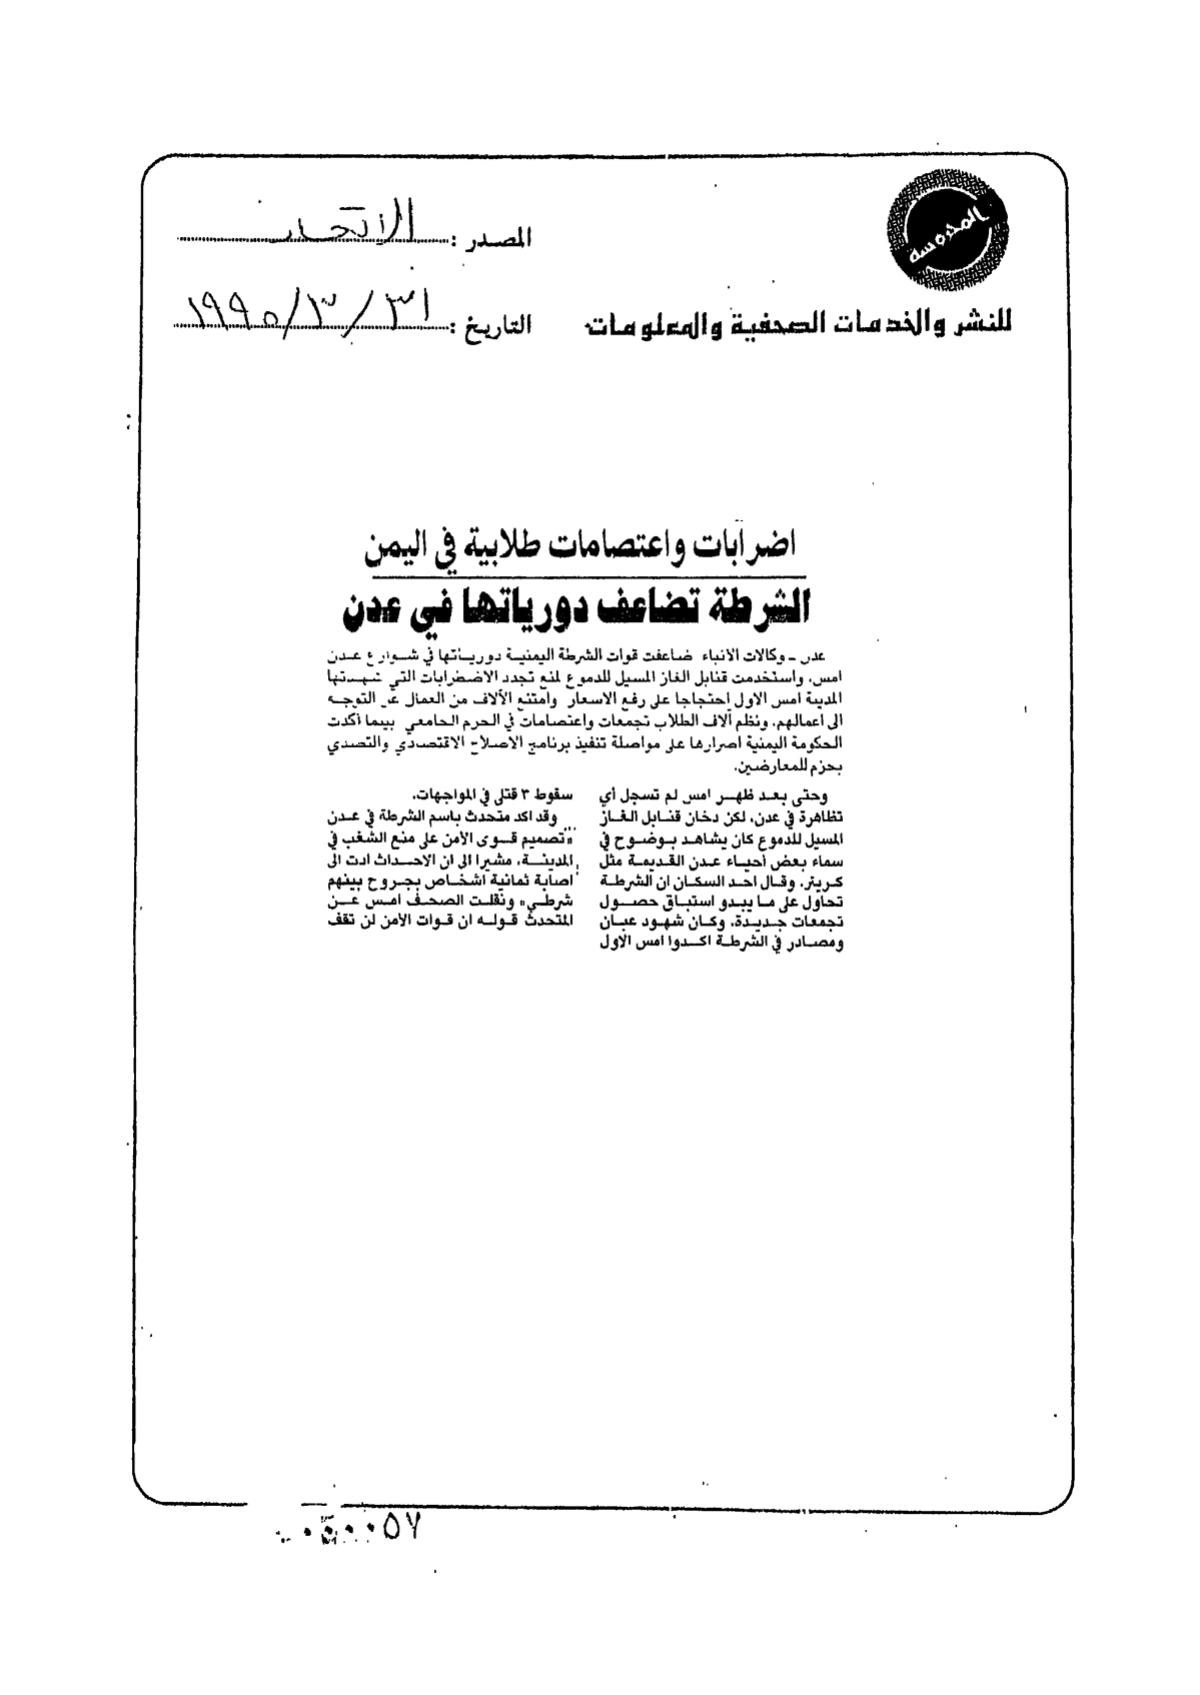 المحروسة
للنشر والخدمات الصحفية والمعلومات
المصدر : الاتحاد
التاريخ : ٣١/٣/١٩٩٥
اضرابات واعتصامات طلابية في اليمن
الشرطة تضاعف دورياتها في عدن
عدن - وكالات الانباء ضاعفت قوات الشرطة اليمنية دورياتها في شوارع عدن
امس، واستخدمت قنابل الغاز المسيل للدموع لمنع تجدد الاضطرابات التي شهدتها
المدينة امس الاول احتجاجا على رفع الاسعار وامتنع الآلاف من العمال عن التوجه
الى اعمالهم، ونظم آلاف الطلاب تجمعات واعتصامات في الحرم الجامعي بينما أكدت
الحكومة اليمنية اصرارها على مواصلة تنفيذ برنامج الاصلاح الاقتصادي والتصدي
بحزم للمعارضين.
وحتى بعد ظهر امس لم تسجل أي
تظاهرة في عدن، لكن دخان قنابل الغاز
المسيل للدموع كان يشاهد بوضوح في
سماء بعض أحياء عدن القديمة مثل
كريتر، وقال احد السكان ان الشرطة
تحاول على ما يبدو استباق حصول
تجمعات جديدة، وكان شهود عيان
ومصادر في الشرطة اكدوا امس الاول
سقوط ٣ قتلى في المواجهات.
وقد اكد متحدث باسم الشرطة في عدن
«تصميم قوى الأمن على منع الشغب في
المدينة، مشيرا الى ان الاحداث ادت الى
اصابة ثمانية اشخاص بجروح بينهم
شرطي» ونقلت الصحف امس عن
المتحدث قوله ان قوات الأمن لن تقف